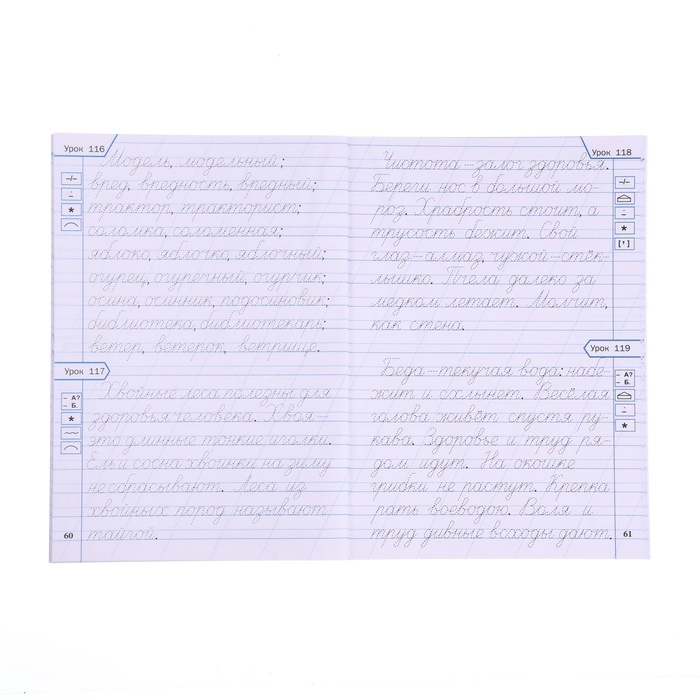 Урок 116
Модель, модельный;
вред, вредность, вредный;
трактор, тракторист;
соломка, соломенная;
яблоко, яблочко, яблочный;
огурец, огуречный, огурчик;
осина, осинник, подосиновик;
библиотека, библиотекарь;
ветер, ветерок, ветрище.
Урок 117
– А?
– Б.
Хвойные леса полезны для
здоровья человека. Хвоя –
это длинные тонкие иголки.
Ель и сосна хвоинки на зиму
не сбрасывают. Леса из
хвойных пород называют
тайгой.
60
Урок 118
Чистота – залог здоровья.
Береги нос в большой мо-
роз. Храбрость стоит, а
трусость бежит. Свой
глаз – алмаз, чужой – стёк-
лышко. Пчела далеко за
медком летает. Молчит,
как стена.
Урок 119
– А?
– Б.
Беда – текучая вода: набе-
жит и схлынет. Весёлая
голова живёт спустя ру-
кава. Здоровье и труд ря-
дом идут. На окошке
грибки не растут. Крепка
рать воеводою. Воля и
труд дивные всходы дают.
61